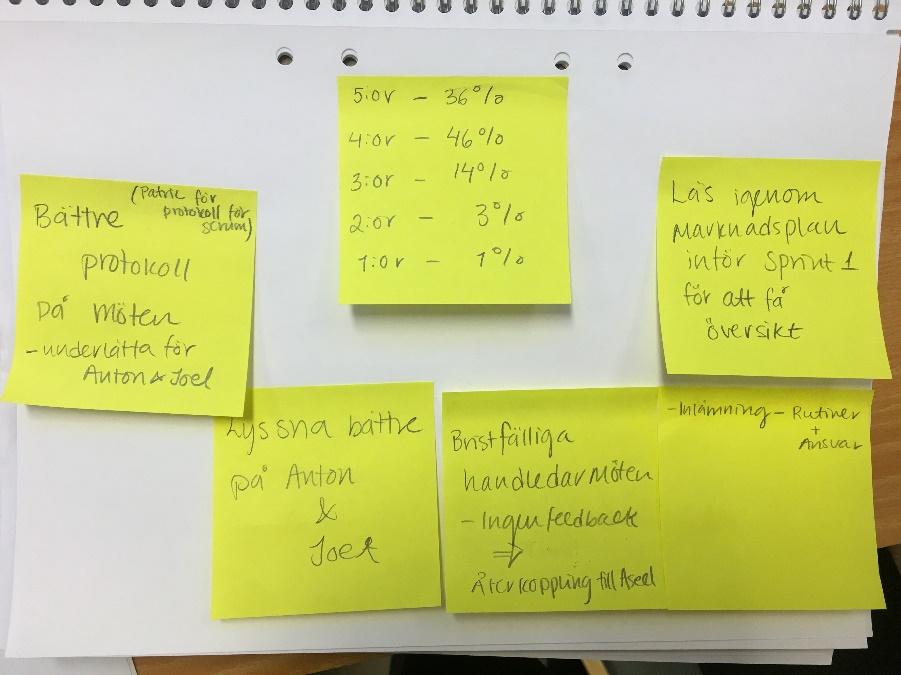 5:or - 36%
4:or - 46%
3:or - 14%
2:or - 3%
1:or - 1%
Bättre (Patric för
protokoll för
scrum)
protokoll
på möten
- underlätta för
Anton & Joel
Läs igenom
marknadsplan
inför sprint 1
för att få
översikt
Lyssna bättre
på Anton
&
Joel
Bristfälliga
handledarmöten
- Ingen feedback
⇒
Återkoppling till Aseel
- Inlämning - Rutiner
+
Ansvar